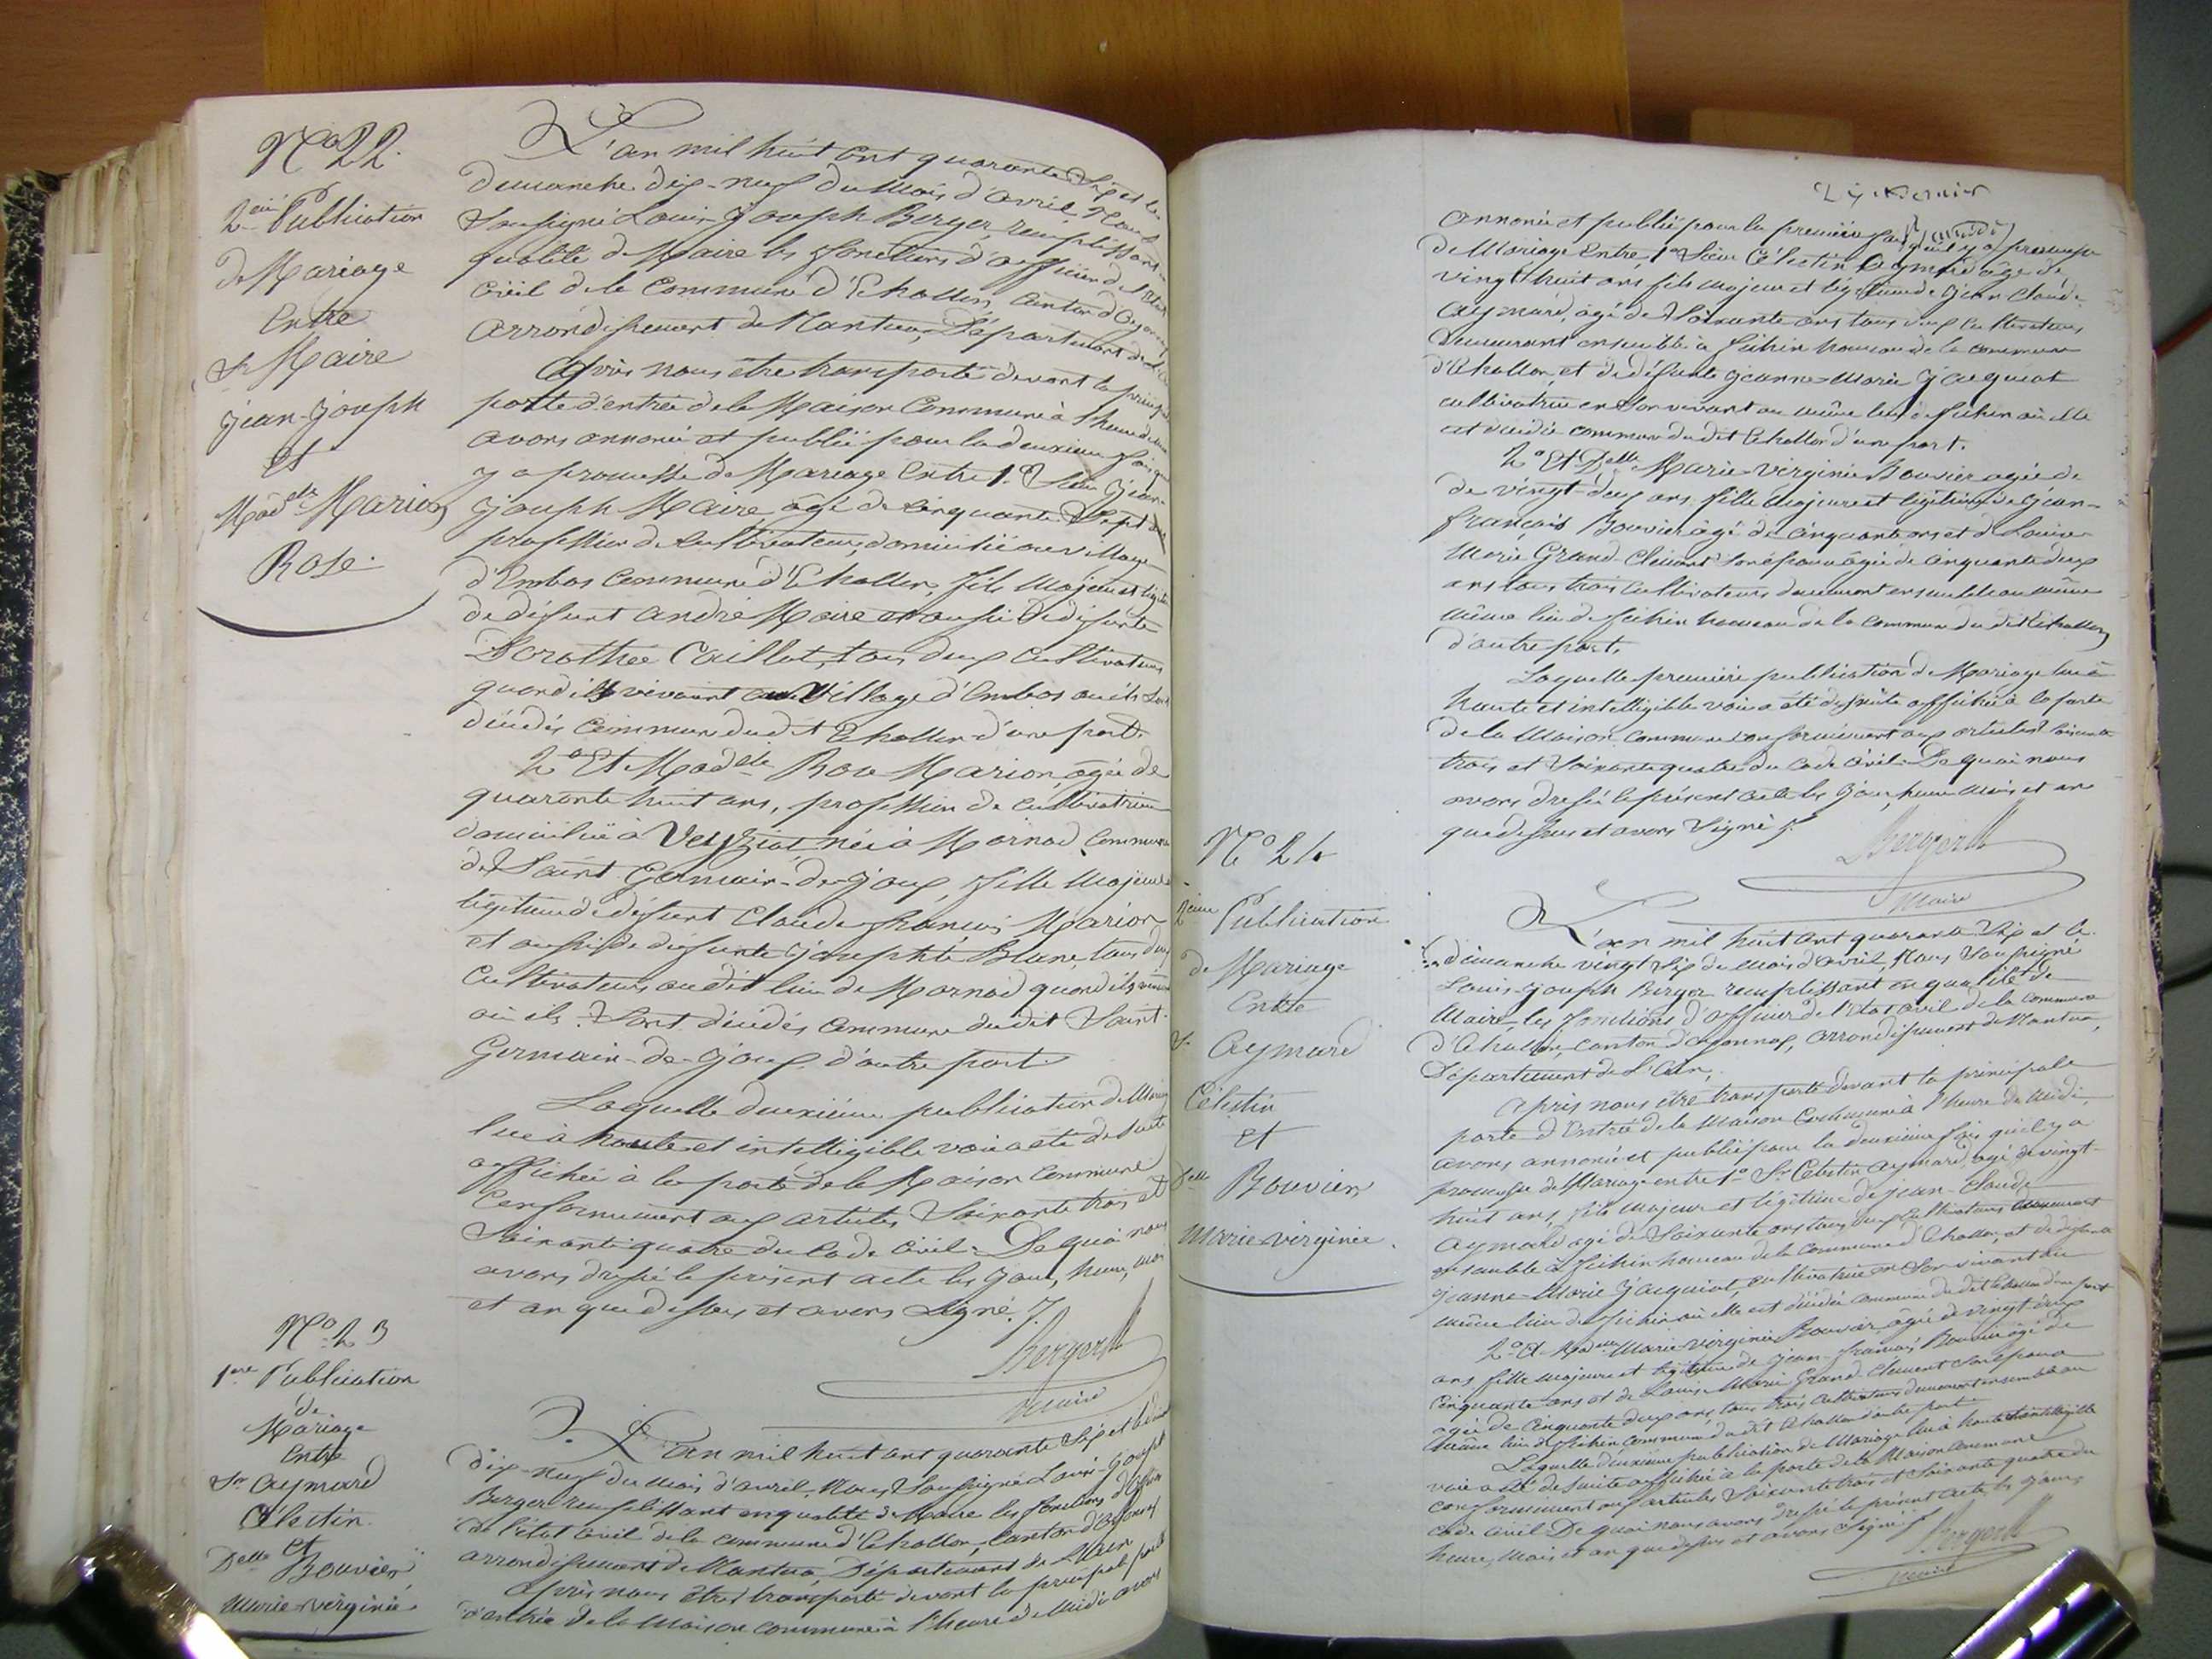 No 22.
2eme Publication
de Mariage
Entre
Sr Maire
Jean-Joseph
et
Madelle Marion
Rose.
L'an mil huit cent quarante Six et le
dimanche dix-neuf du Mois d'avril, Nous
Soussigné Louis-Joseph Berger, remplissant en
qualité de Maire les fonctions d'officier de l'état
Civil de la Commune d'Echallon, Canton d'Oyonnax
arrondissement de Nantua, Département de l'Ain
Après nous être transporté devant la principale
porte d'entrée de la Maison Commune à l'heure de
avons annoncé et publié pour la deuxième fois qu'il
y a promesse de Mariage Entre 1.o Sieur Jean-
Joseph Maire âgé de Cinquante Sept ans
profession de Cultivateur, domicilié au village
d'Embas Commune d'Echallon, fils Majeur et légitime
de défunt André Maire et aussi de défunte
Dorothée Caillat, tous deux Cultivateurs
quand ils vivaient au Village d'Embas où ils Sont
décédés Commune dudit Echallon d'une part.
2.o Et Madelle Rose Marion, âgée de
quarante huit ans, profession de Cultivatrice
domiciliée à Veyziat née à Mornad Commune
de Saint Germain-de-Joux, fille Majeure
légitime de défunt Claude François Marion
et aussi de défunte Josephte Blanc, tous deux
Cultivateurs audit lieu de Mornad quand ils vivaient
où ils Sont décédés Commune dudit Saint-
Germain-de-Joux d'autre part.
Laquelle deuxième publication de Mariage
lue à haute et intelligible voix a été de suite
affichée à la porte de la Maison Commune
Conformément aux articles Soixante trois et
Soixante quatre du Code Civil. De quoi nous
avons dressé le présent acte les Jour, heure, mois
et an que dessus et avons Signé.
Berger
Maire
No 23
1ere Publication
de
Mariage
Entre
Sr Aymard
Célestin
et
Delle Bouvier
Marie-virginie
L'an mil huit cent quarante Six et le dimanche
dix-neuf du Mois d'avril, Nous Soussigné Louis-Joseph
Berger remplissant en qualité de Maire les fonctions d'officier
de l'état Civil de la commune d'Echallon, Canton d'Oyonnax
arrondissement de Nantua, Département de l'Ain
Après nous être transporté devant la principale porte
d'entrée de la Maison commune à l'heure de Midi avons
annoncé et publié pour la première fois qu'il y a promesse
de Mariage Entre 1o Sieur Célestin Aymard âgé de
vingt huit ans fils majeur et légitime de Jean Claude
Aymard, âgé de Soixante ans tous deux cultivateurs
demeurant ensemble à hameau de la commune
d'Echallon, et de défunte Jeanne-Marie Jacquiot
cultivatrice en Son vivant au même lieu de où elle
est décédée commune dudit Echallon d'une part.
2o Et Delle Marie-virginie Bouvier agée de
de vingt-deux ans fille Majeure et légitime de Jean-
françois Bouvier âgé de Cinquante ans et de Louise
Marie Grand-Clément Son épouse âgée de Cinquante deux
ans tous trois Cultivateurs demeurant ensemble au même
même lieu de hameau de la commune du dit Echallon
d'autre part.
Laquelle première publication de Mariage lue à
haute et intelligible voix a été de suite affichée à la porte
de la Maison Commune conformément aux articles Soixante
trois et Soixante quatre du Code Civil. De quoi nous
avons dressé le présent acte les Jour, heure Mois et an
que dessus et avons Signé.
Berger
Maire
No 24
2eme Publication
de Mariage
Entre
Sr Aymard
Célestin
et
Delle Bouvier
Marie-virginie.
L'an mil huit cent quarante Six et le
dimanche vingt Six du Mois d'avril, Nous Soussigné
Louis-Joseph Berger remplissant en qualité de
Maire les fonctions d'officier de l'état Civil de la Commune
d'Echallon, canton d'Oyonnax, arrondissement de Nantua,
Département de l'Ain,
Après nous être transporté devant la principale
porte d'Entrée de la Maison Commune à l'heure de Midi,
avons annoncé et publié pour la deuxième fois qu'il y a
promesse de Mariage entre 1o Sr Célestin Aymard, âgé de vingt-
huit ans, fils majeur et légitime de Jean-Claude
Aymard âgé de Soixante ans tous deux Cultivateurs demeurant
ensemble à hameau de la commune d'Echallon, et de défunte
Jeanne-Marie Jacquiot, cultivatrice en Son vivant au
même lieu de où elle est décédée commune du dit Echallon d'une part
2o Et Madelle Marie virginie Bouvier, agée de vingt-deux
ans fille majeure et légitime de Jean-françois Bouvier âgé de
Cinquante ans et de Louise Marie Grand-Clément Son épouse
agée de Cinquante deux ans, tous trois Cultivateurs demeurant ensemble au
même lieu de commune du dit Echallon d'autre part.
Laquelle deuxième publication de Mariage lue à haute et intelligible
voix a été de Suite affichée à la porte de la Maison Commune
conformément aux articles Soixante trois et Soixante quatre du
Code Civil. De quoi nous avons dressé le présent acte les Jour,
heure, Mois et an que dessus et avons Signé
Berger
Maire